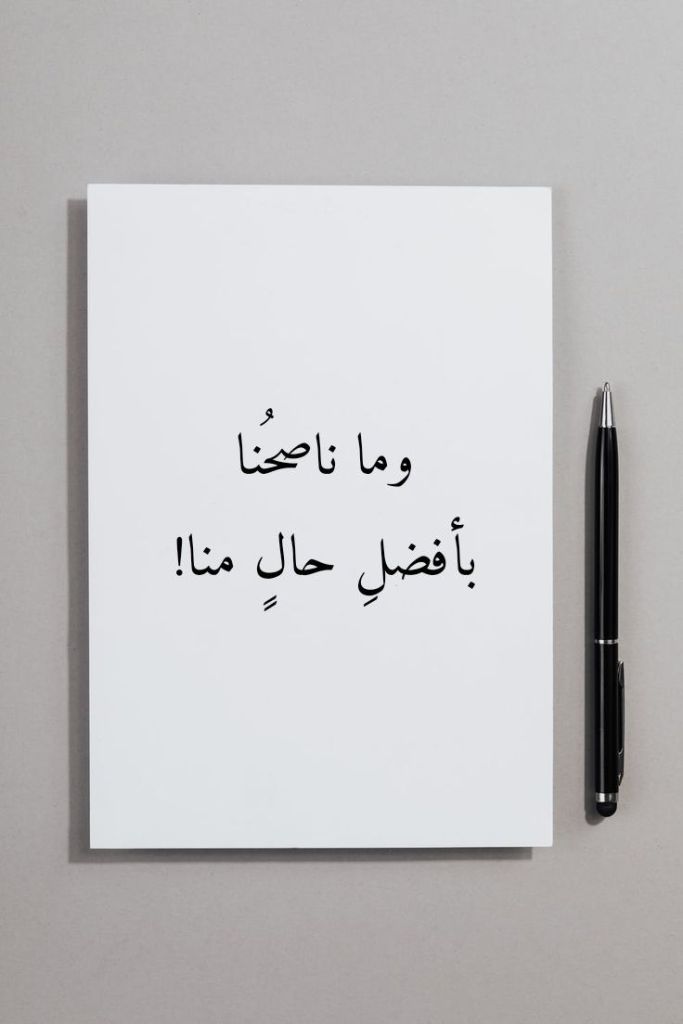 وما ناصحُنا
بأفضلِ حالٍ منا!